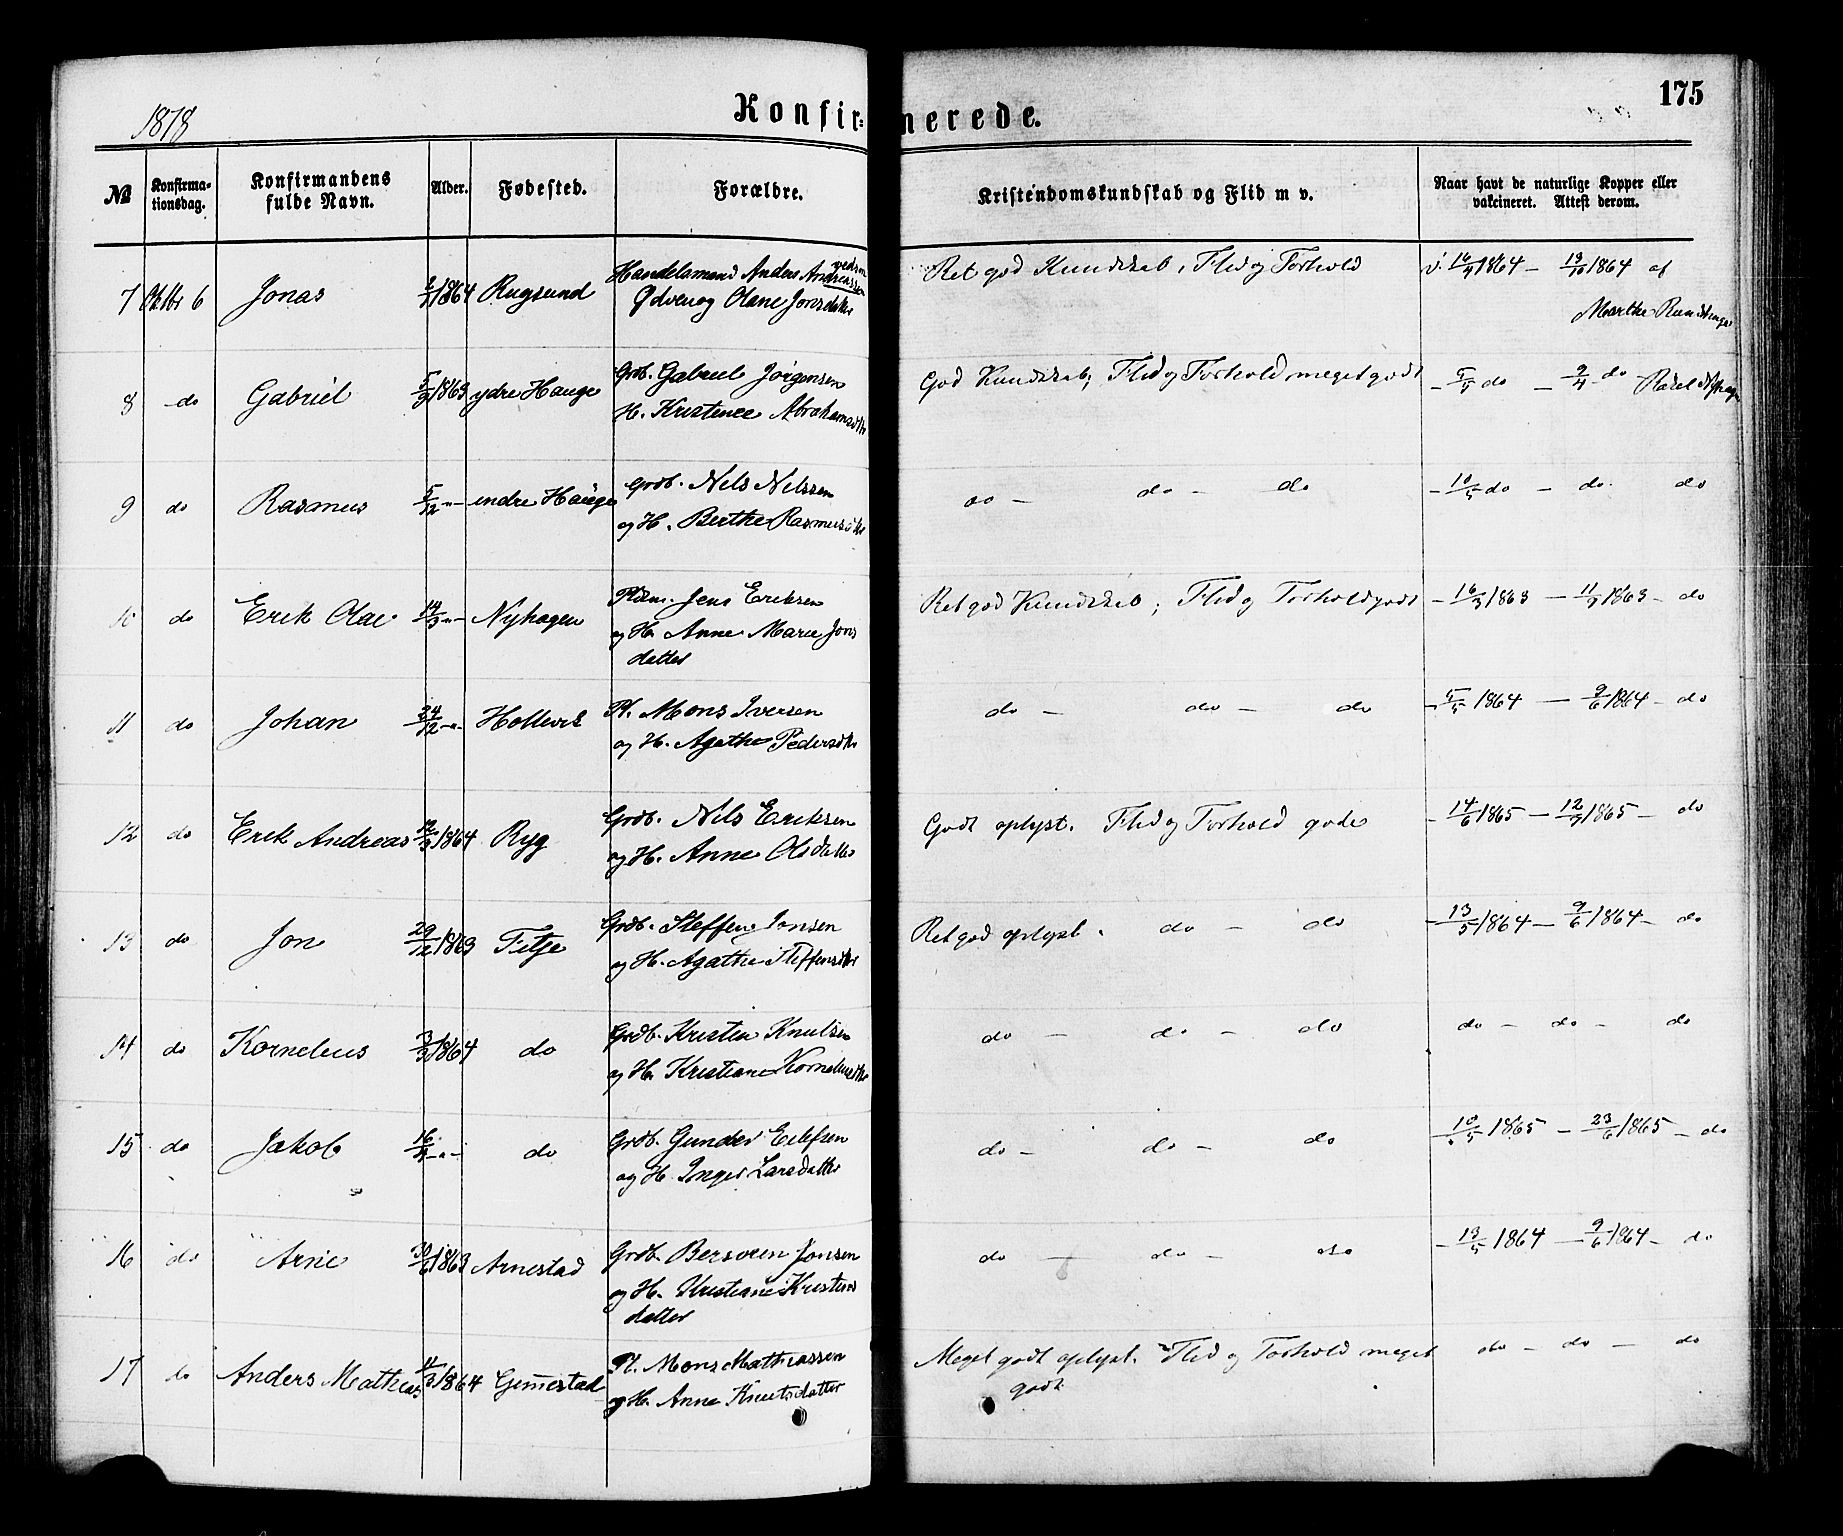 1878
Konfirmerede.
175
№ Konfirmationsdag. Konfirmandens fulde Navn. Alder. Fødested. Forældre. Kristendomskundskab og Flid m v. Naar havt de naturlige Kopper eller vakcineret. Attest derom.
7 Oktbr 6 Jonas 1864 Rugsund Handelsmand Anders Andreassen Ret god Kundskab, Flid og Forhold v. 1864 – 1864 af
og Olane Jonsdatter Marthe
8 do Gabriel 5/9 1863 ydre Hauge Grdb. Gabriel Jørgensen God Kundskab; Flid og Forhold meget godt – 5/5 do – 9/4 do
H. Kristence Abrahamsdtr
9 do Rasmus 5/12 –"– indre Hauge Grdb. Nels Nelssen do – do – do – 10/5 do – do do
og H. Berthe Rasmusdtr
10 do Erik Olai 14/3 –"– Nyhagen Pldsm. Jens Eriksen Ret god Kundskab; Flid og Forhold godt – 16/3 1863 – 11/9 1863 – do
og H. Anne Marie Jons
datter
11 do Johan 24/12 –"– Hollevik Pl. Mons Iversen do – do – do – 5/5 1864 – 9/6 1864 – do
og H. Agathe Pedersdtr
12 do Erik Andreas 12/3 1864 Ryg Grdb. Nils Eriksen Godt oplyst. Flid og Forhold gode – 14/6 1865 – 12/9 1865 – do
og H. Anne Olsdatter
13 do Jon 29/12 1863 Fitje Grdb. Steffen Jonsen Ret god oplyst. do – do – 13/5 1864 – 9/6 1864 – do
og H. Agathe Steffensdtr
14 do Kornelius 3/3 1864 do Grdb. Kristen Knutsen do – do – do do – do – do
og H. Kristiane Korneliusdtr
15 do Jakob 16/4 –"– do Grdb. Gunder Eilefsen do – do – do – 10/5 1865 – 23/6 1865 – do
og H. Inger Larsdatter
16 do Arne 30/6 1863 Arnestad Grdb. Bersven Jonsen do – do – do – 13/5 1864 – 9/6 1864 – do
og H. Kristiane Kristens
datter
17 do Anders Mathias 11/3 1864 Gimestad Pl. Mons Mathiassen Meget godt oplyst. Flid og Forhold meget do – do – do
og H. Anne Knutsdatter godt